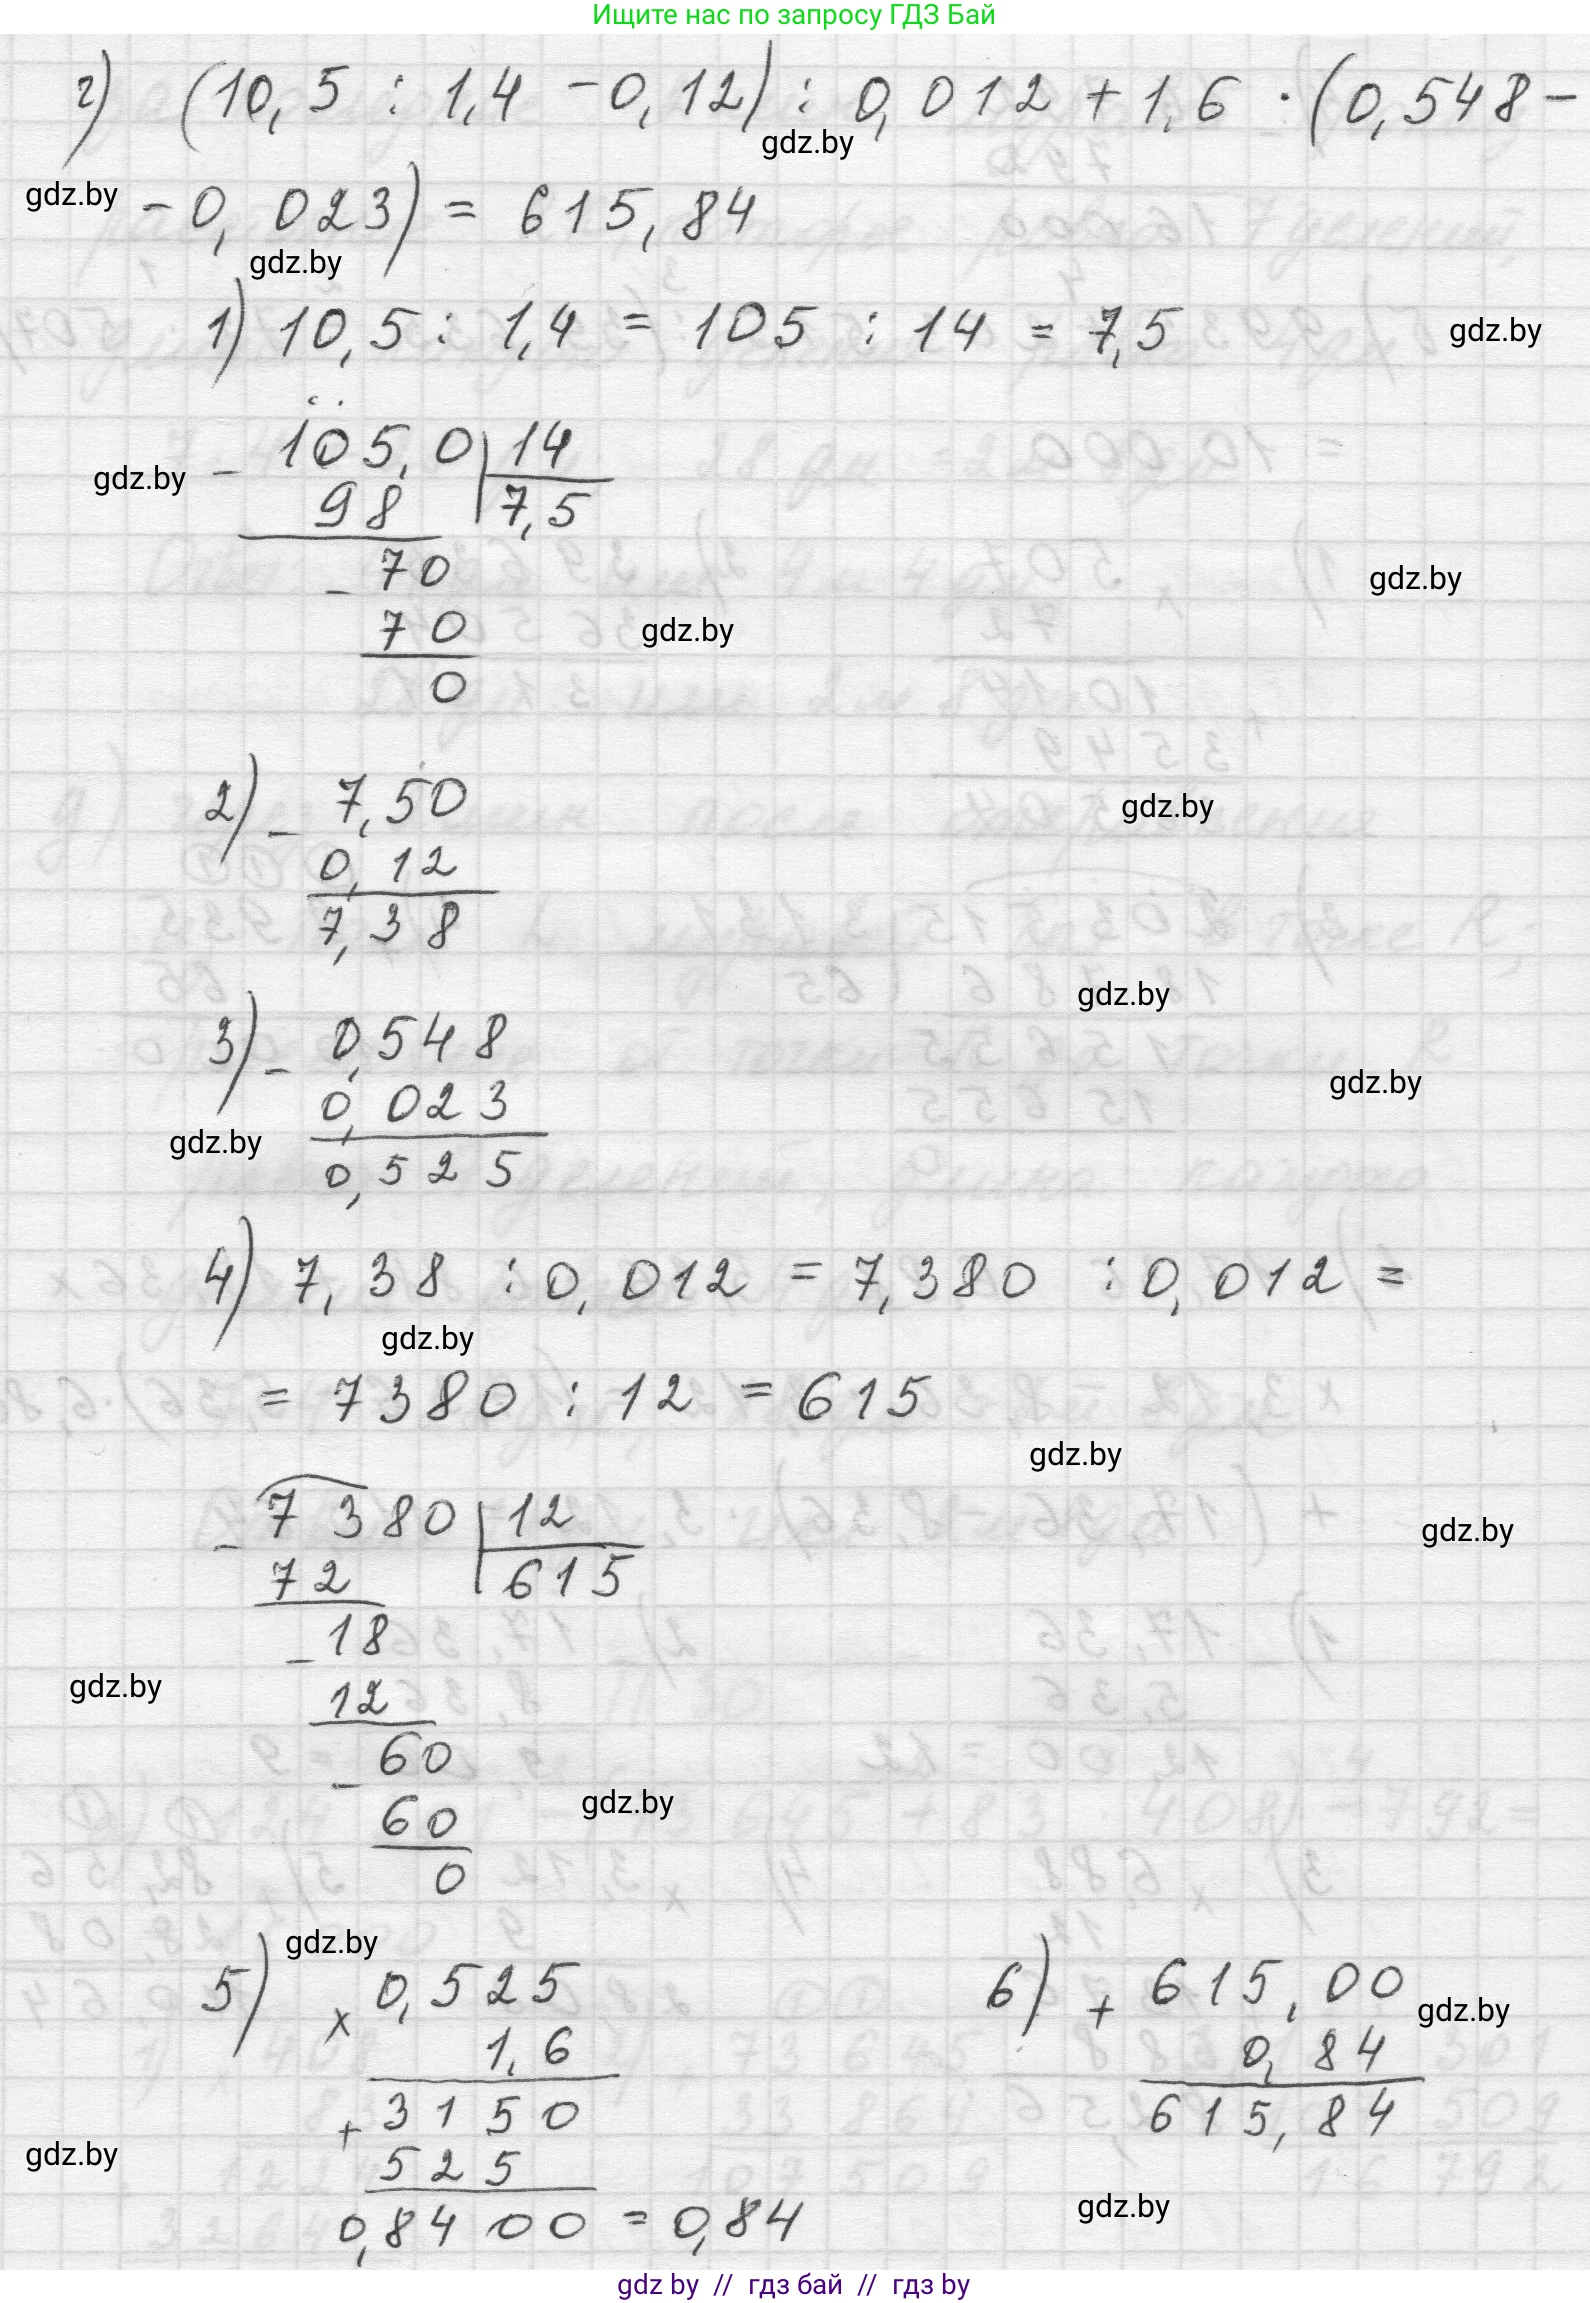 Ищите нас по запросу ГДЗ Бай
г) (10,5 : 1,4 - 0,12) : 0,012 + 1,6 · (0,548 -
gdz.by
gdz.by
- 0,023) = 615,84
gdz.by
1) 10,5 : 1,4 = 105 : 14 = 7,5
gdz.by
- 105,0 | 14
gdz.by
98 7,5
- 70
gdz.by
70
gdz.by
0
2) - 7,50
gdz.by
0,12
7,38
gdz.by
3) - 0,548
gdz.by
0,023
gdz.by
0,525
4) 7,38 : 0,012 = 7,380 : 0,012 =
gdz.by
= 7380 : 12 = 615
gdz.by
- 7380 | 12
gdz.by
72 615
- 18
gdz.by
12
- 60
gdz.by
60
0
gdz.by
5) × 0,525 6) + 615,00
gdz.by
1,6 0,84
+ 3150 615,84
gdz.by
525
gdz.by
0,8400 = 0,84
gdz by // гдз бай // гдз by